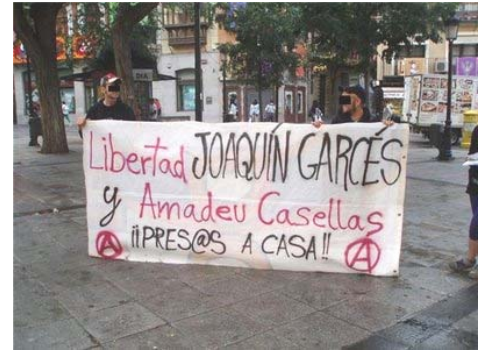 DIA
Libertad JOAQUÍN GARCÉS
y Amadeu Casellas
¡¡PRES@S A CASA!!